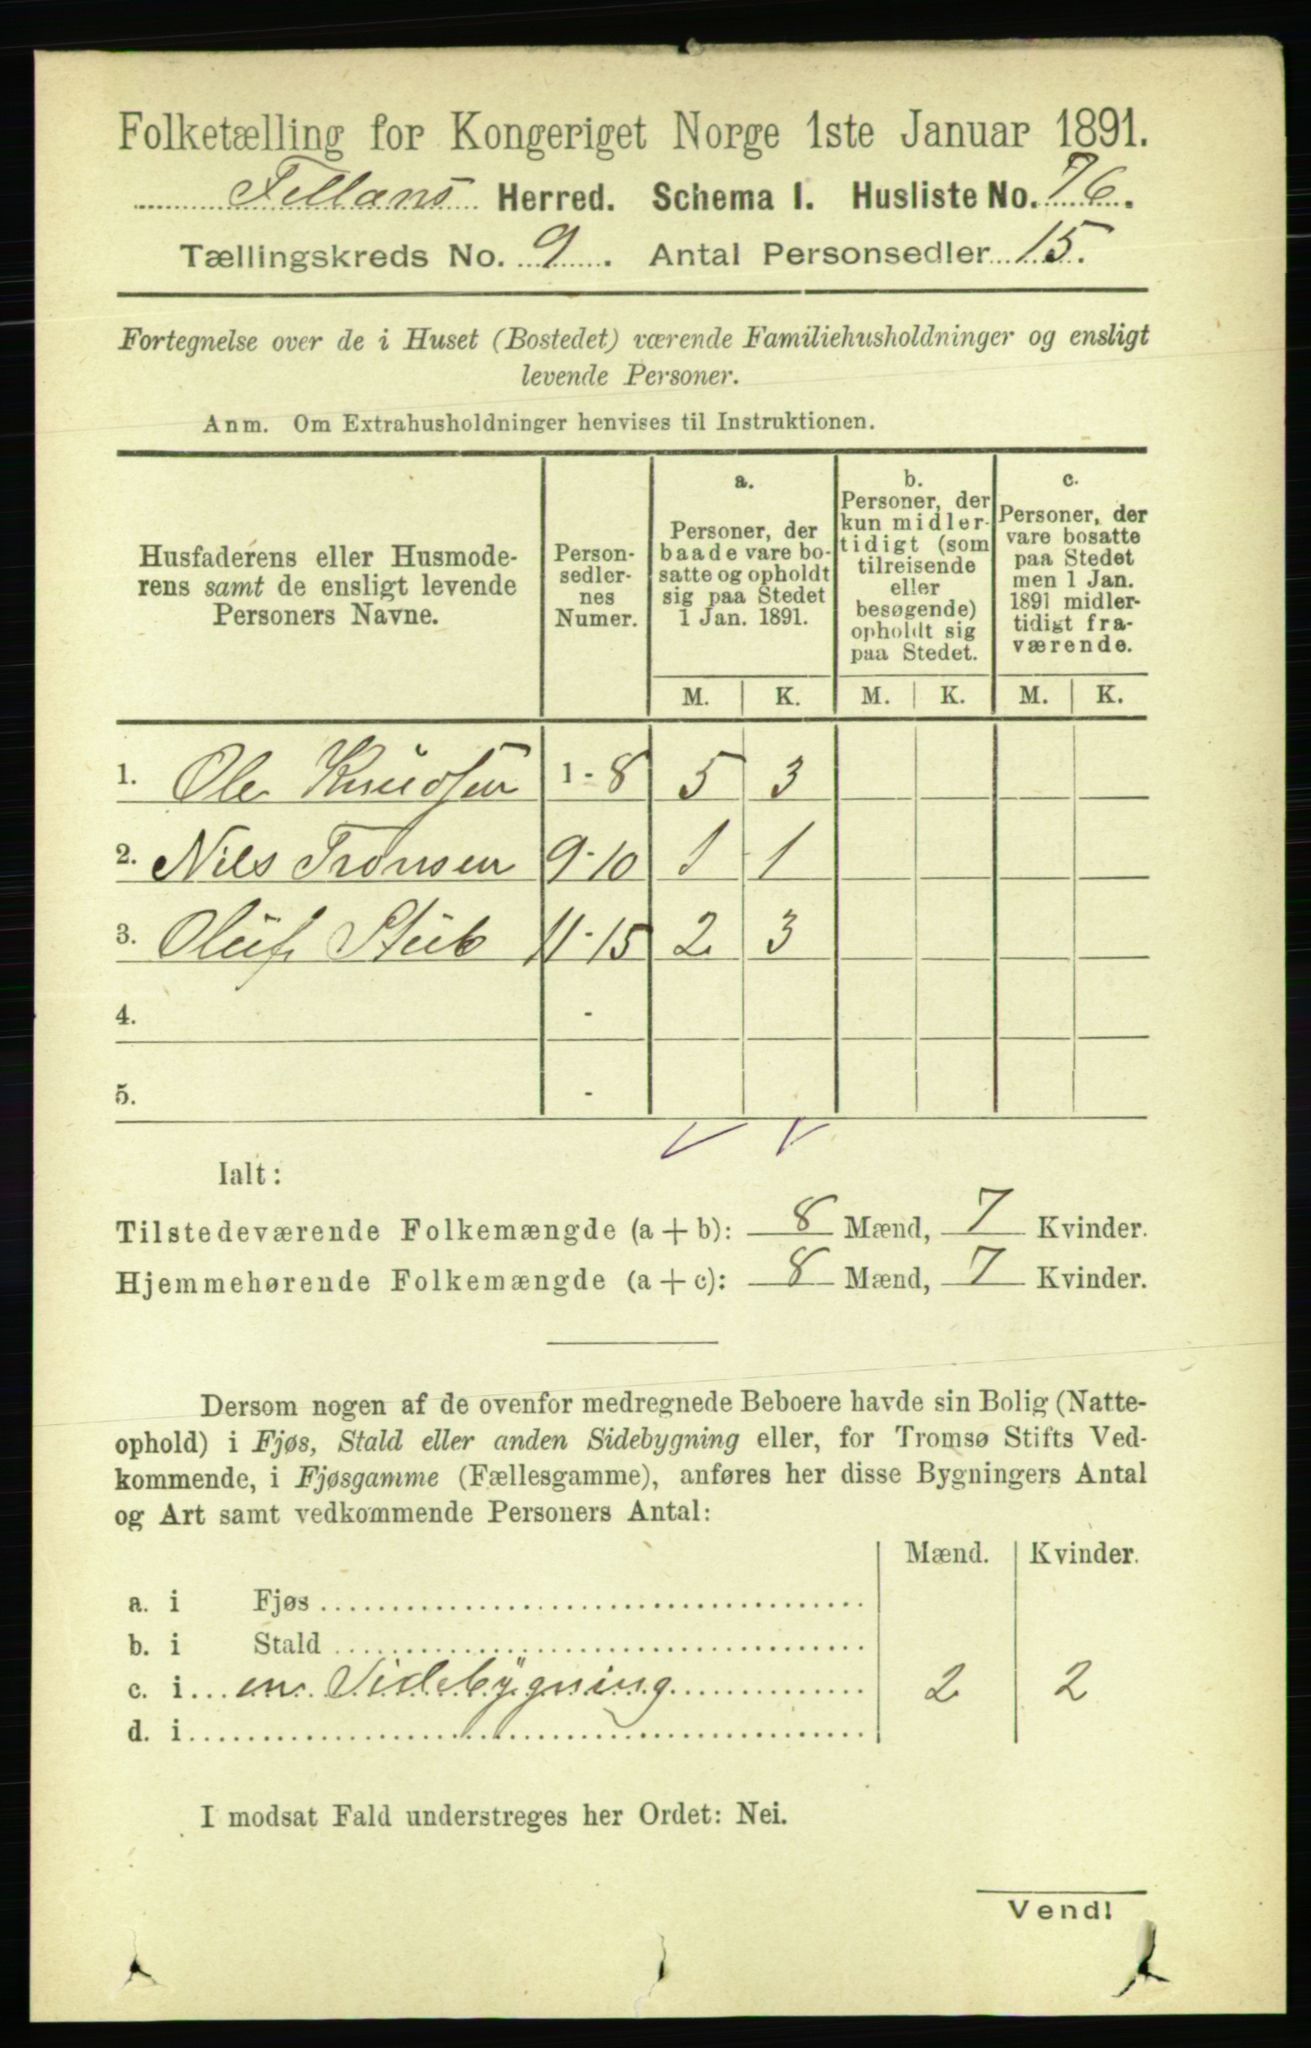 Folketælling for Kongeriget Norge 1ste Januar 1891.
Fillans Herred. Schema I. Husliste No. 76.
Tællingskreds No. 9. Antal Personsedler 15.
Fortegnelse over de i Huset (Bostedet) værende Familiehusholdninger og ensligt
levende Personer.
Anm. Om Extrahusholdninger henvises til Instruktionen.
Husfaderens eller Husmode-
rens samt de ensligt levende
Personers Navne.
Person-
sedler-
nes
Numer.
a.
Personer, der
baade vare bo-
satte og opholdt
sig paa Stedet
1 Jan. 1891.
b.
Personer, der
kun midler-
tidigt (som
tilreisende
eller
besøgende)
opholdt sig
paa Stedet.
c.
Personer, der
vare bosatte
paa Stedet
men 1 Jan.
1891 midler-
tidigt fra-
værende.
M. K. M. K. M. K.
1. Ole Knudsen 1-8 5 3
2. Nils Tronsen 9-10 1 1
3. Oluf Stub 11-15 2 3
4. -
5. -
Ialt:
Tilstedeværende Folkemængde (a + b): 8 Mænd, 7 Kvinder.
Hjemmehørende Folkemængde (a + c): 8 Mænd, 7 Kvinder.
Dersom nogen af de ovenfor medregnede Beboere havde sin Bolig (Natte-
ophold) i Fjøs, Stald eller anden Sidebygning eller, for Tromsø Stifts Ved-
kommende, i Fjøsgamme (Fællesgamme), anføres her disse Bygningers Antal
og Art samt vedkommende Personers Antal:
Mænd. Kvinder.
a. i Fjøs
b. i Stald
c. i en Sidebygning 2 2
d. i
I modsat Fald understreges her Ordet: Nei.
Vend!